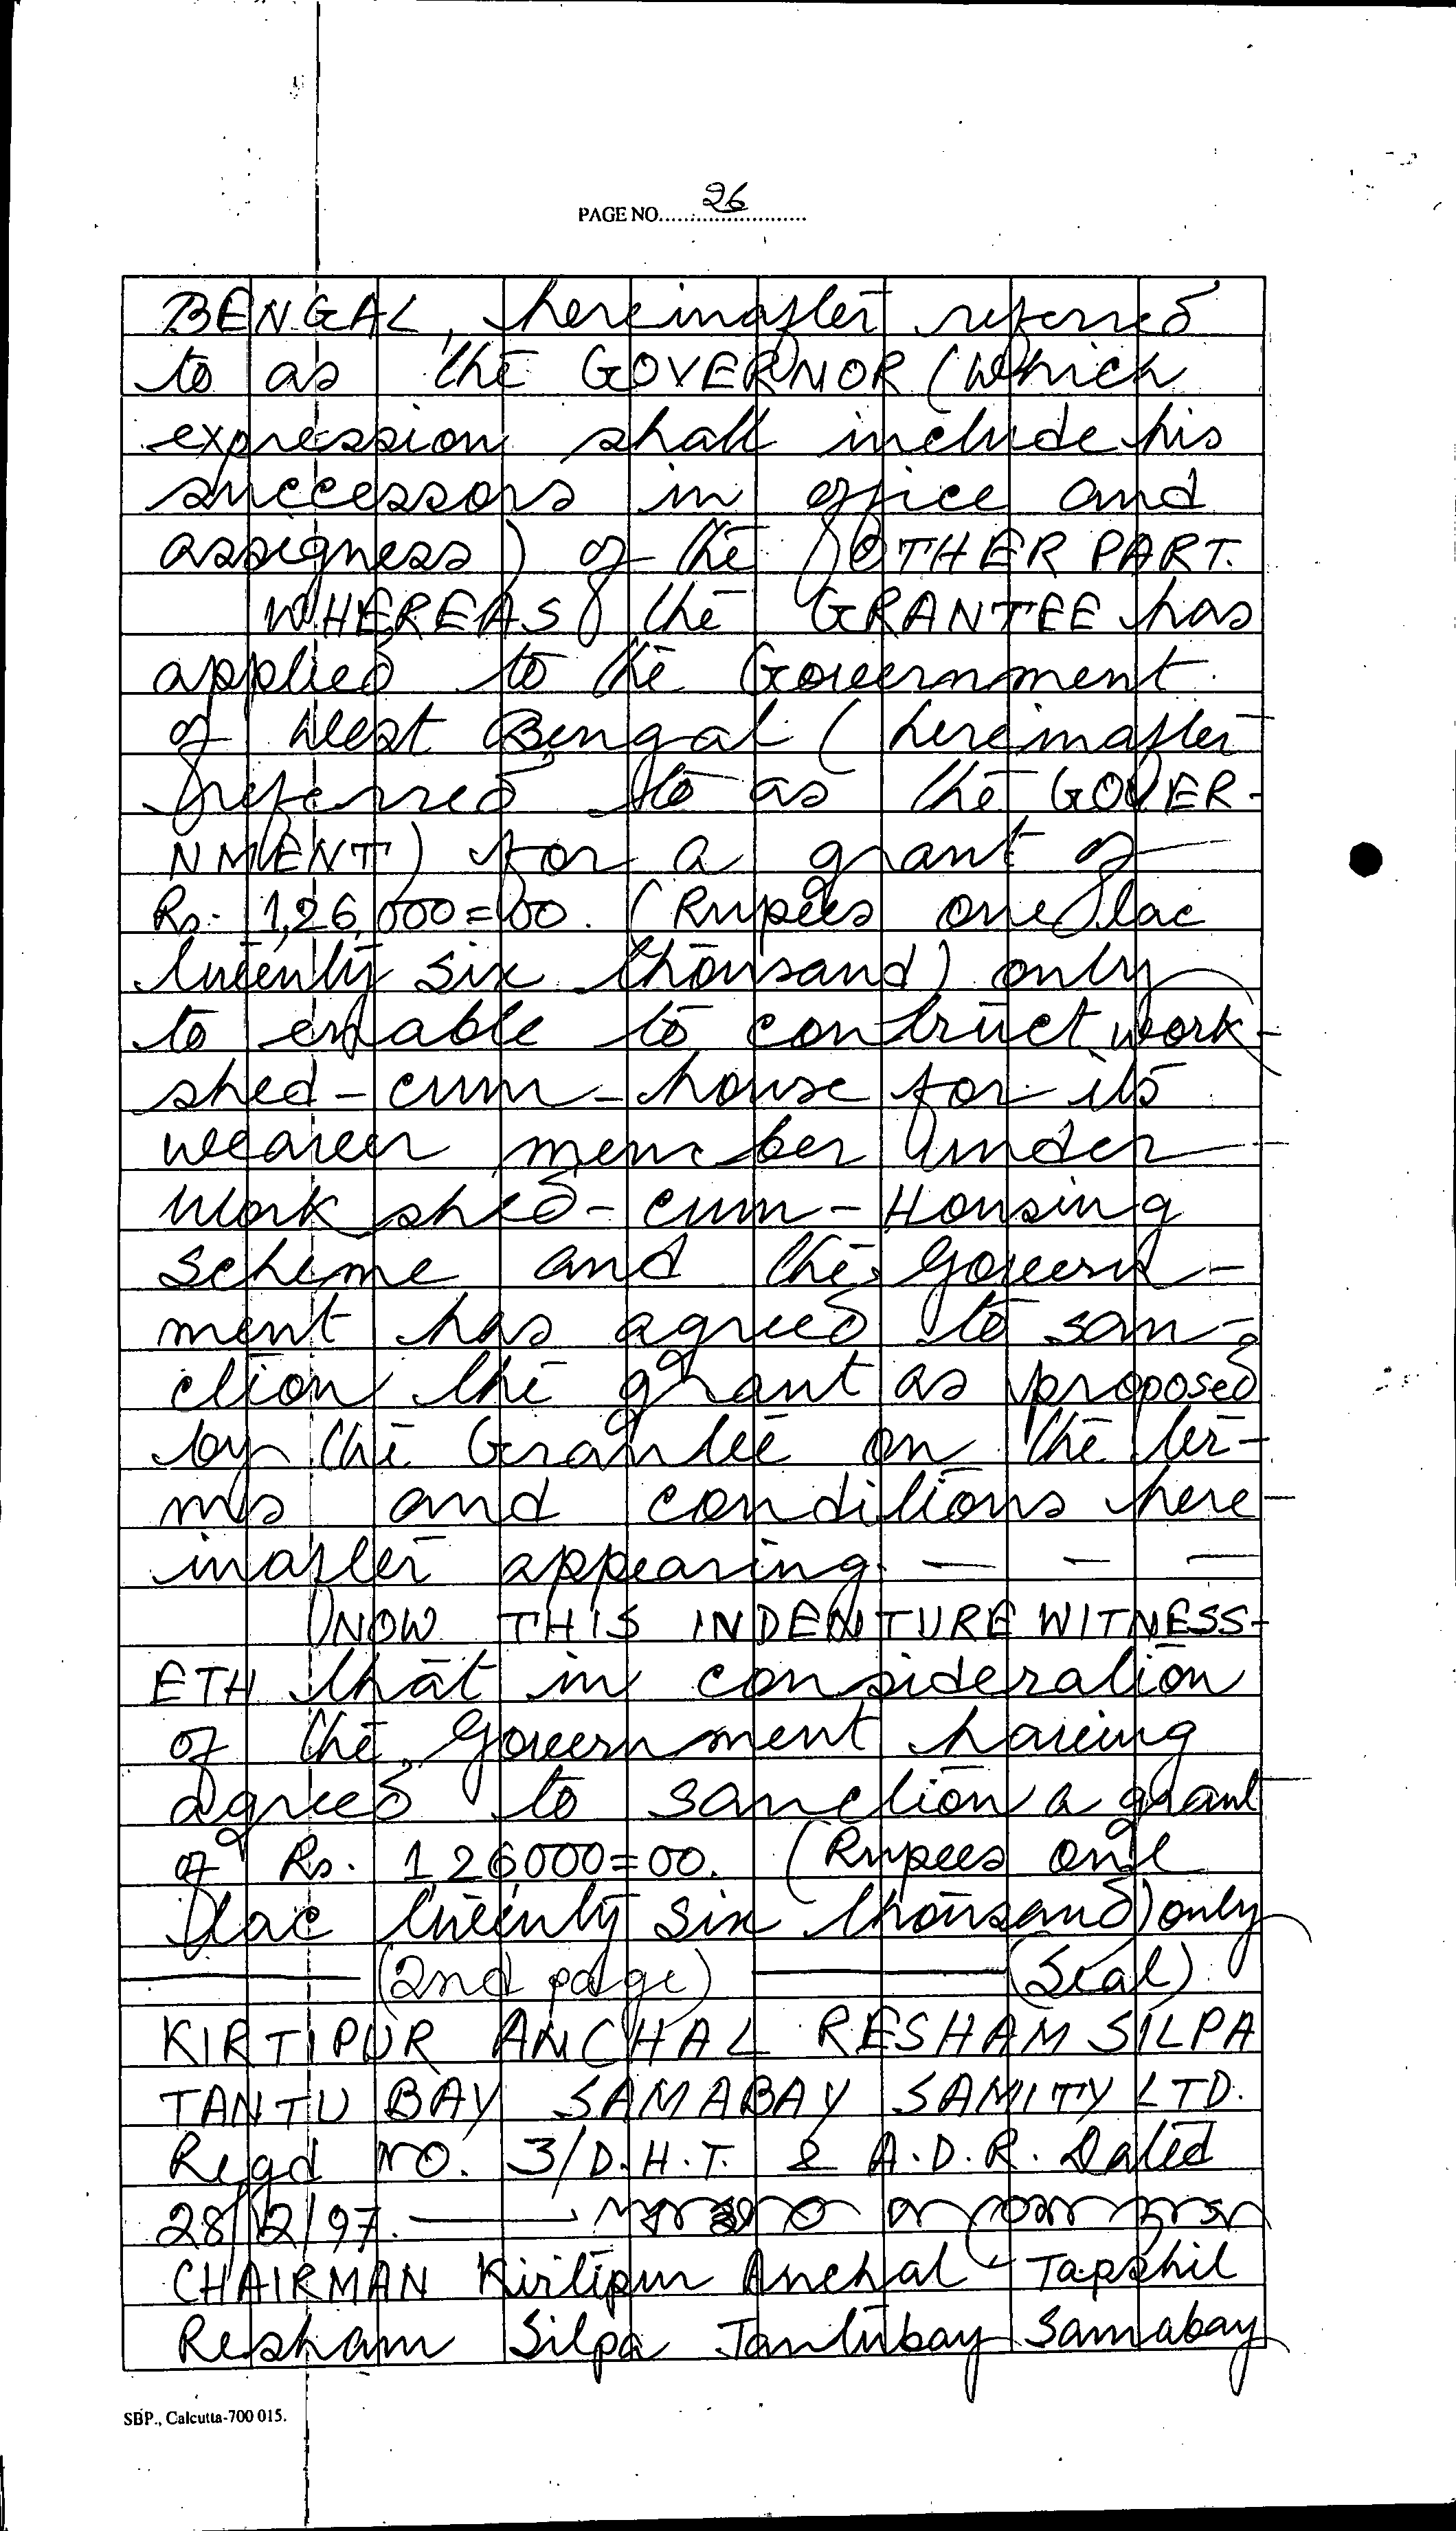 PAGE NO. 26
BENGAL, hereinafter referred
to as the GOVERNOR (Which
expression shall include his
successors in office and
assigness) of the OTHER PART.
WHEREAS the GRANTEE has
applied to the Government
of West Bengal (hereinafter
referred to as the GOVER-
NMENT) for a grant of
Rs. 1,26,000=00. (Rupees one lac
twenty six thousand) only
to enable to contruct work-
shed-cum-house for its
weaver member under
Work shed-cum-Housing
scheme and the Govern-
ment has agreed to san-
ction the grant as proposed
by the Grantee on the ter-
ms and conditions here-
inafter appearing. — — —
NOW THIS INDENTURE WITNESS-
ETH that in consideration
of the Government having
agreed to sanction a grant
of Rs. 1,26,000=00. (Rupees one
lac twenty six thousand) only
——— (2nd page) ——— (Seal)
KIRTIPUR ANCHAL RESHAM SILPA
TANTU BAY SAMABAY SAMITY LTD.
Regd NO. 3/D.H.T. & A.D.R. Dated
28/12/97. ———
CHAIRMAN Kiritipur Anchal Tapshil
Resham Silpa Tantubay Samabay
SBP., Calcutta-700 015.